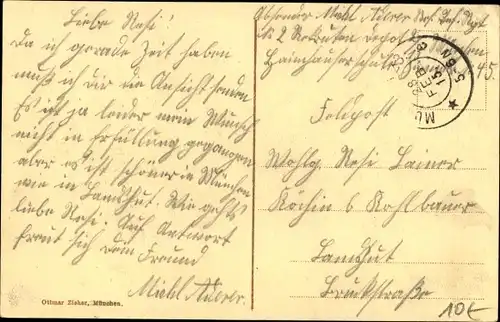 Liebe Resi!
Da ich gerade Zeit haben
muß ich dir die Ansicht senden
Es ist ja leider mein Wunsch
nicht in Erfüllung gegangen
aber es ist schöner in München
wie in Landshut. Wie gehts
liebe Resi. Auf Antwort
freut sich dein Freund
Michl Auerer.
Ottmar Zieher, München.
Absender Michl Auerer Res. Inf. Rgt
2 Rekruten depot München
Haimhauserschule 45.
MÜ
28 FEB 15
5-6N
Feldpost
Wohlg. Resi Lainer
Köchin b Kohlbauer
Landshut
Bruckstraße
10€